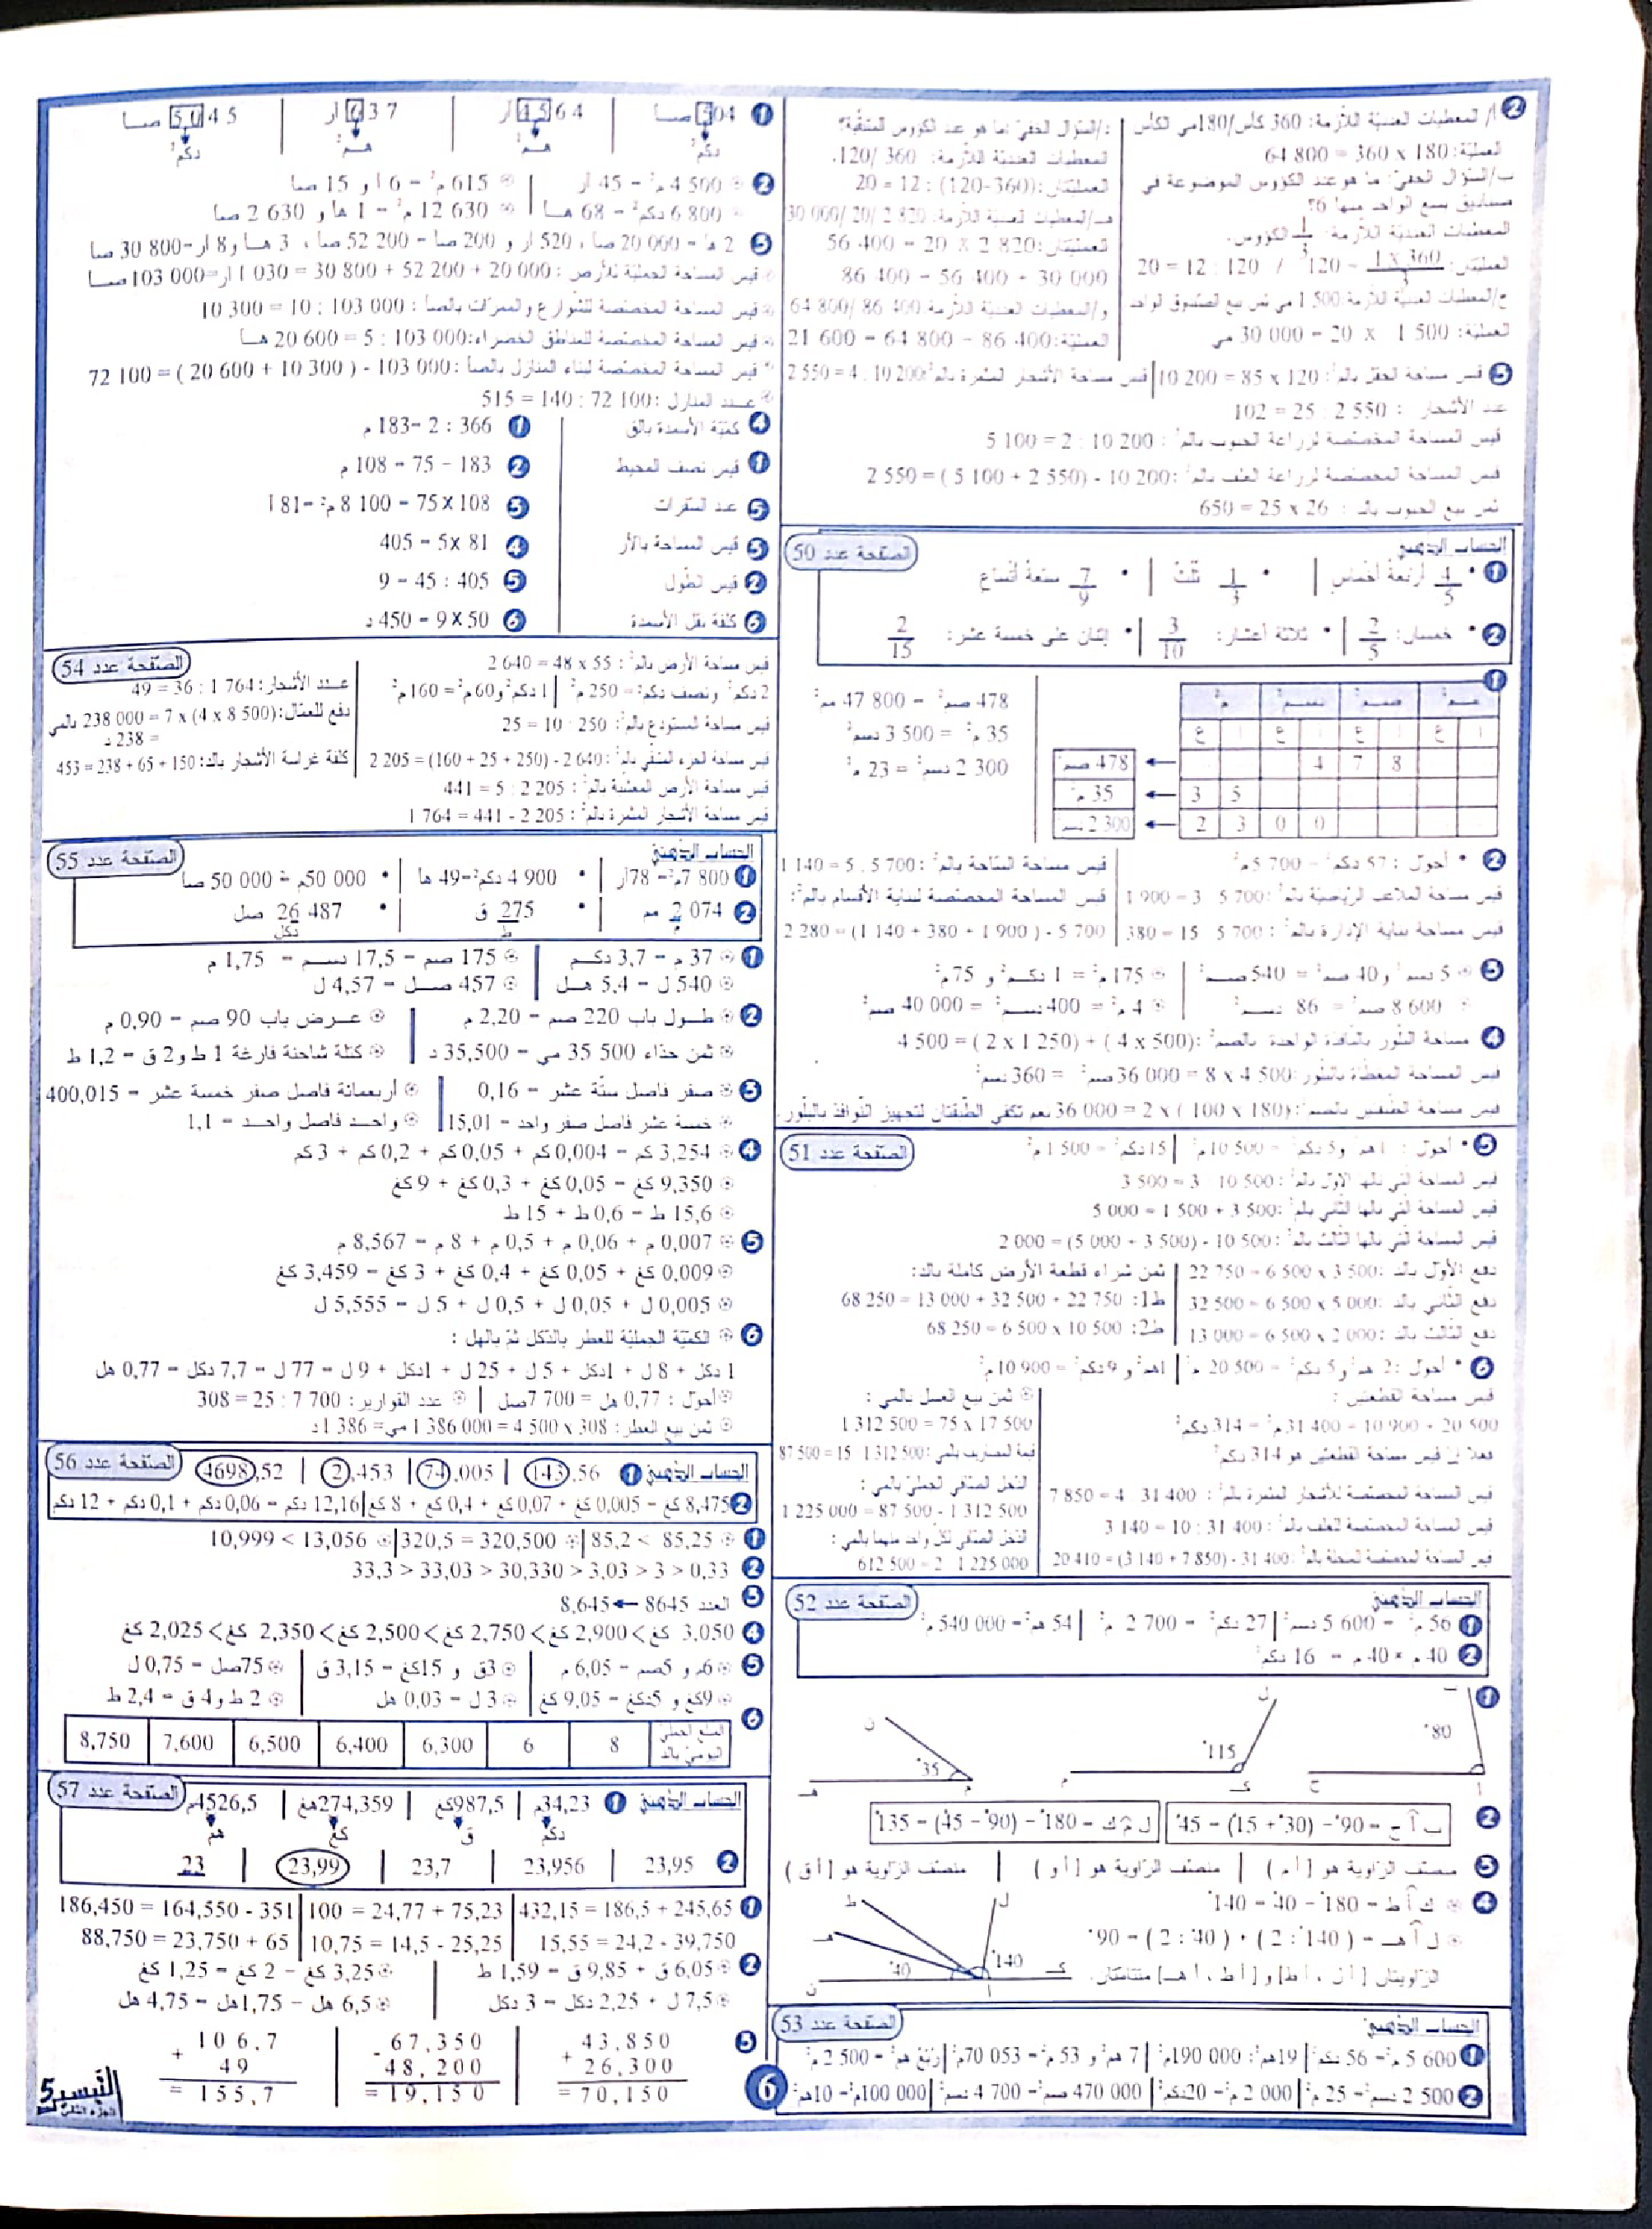 2 أ/ المعطيات العدديّة اللاّزمة: 360 كأس/180مي الكأس
العمليّة: 180 x 360 = 64 800
ب/السّؤال الخفيّ: ما هو عدد الكؤوس الموضوعة في
صناديق يسع الواحد منها 6؟
المعطيات العدديّة اللاّزمة: 1/3 الكؤوس.
ج/المعطيات العدديّة اللاّزمة: 1 500 مي ثمن بيع الصّندوق الواحد
العمليّة: 1 500 x 20 = 30 000 مي
د/السّؤال الخفيّ: ما هو عدد الكؤوس المتبقّية؟
المعطيات العدديّة اللاّزمة: 360 /120.
العمليّتان: (360-120) : 12 = 20
هـ/المعطيات العدديّة اللاّزمة: 2 820 /20/ 30 000
العمليّتان: 2 820 x 20 = 56 400
30 000 + 56 400 = 86 400
و/المعطيات العدديّة اللاّزمة: 86 400 /64 800
العمليّة: 86 400 - 64 800 = 21 600
5 قيس مساحة الحقل بالم²: 120 x 85 = 10 200 | قيس مساحة الأشجار المثمرة بالم²: 10 200 : 4 = 2 550
عدد الأشجار : 2 550 : 25 = 102
قيس المساحة المخصّصة لزراعة الحبوب بالم² : 10 200 : 2 = 5 100
قيس المساحة المخصّصة لزراعة العلف بالم²: 10 200 - (2 550 + 5 100 ) = 2 550
ثمن بيع الحبوب بالد : 26 x 25 = 650
الحساب الذّهني
الصّفحة عدد 50
1 • 4/5 أربعة أخماس | • 1/3 ثلث | • 7/9 سبعة أتساع
2 • خمسان: 2/5 | • ثلاثة أعشار: 3/10 | • إثنان على خمسة عشر: 2/15
1
478 صم² = 47 800 مم²
35 م² = 3 500 دسم²
2 300 دسم² = 23 م²
478 صم² ← 4 7 8
35 م² ← 3 5
2 300 دسم² ← 2 3 0 0
2 • أحوّل : 57 دكم² = 5 700 م²
قيس مساحة الملاعب الرّياضية بالم²: 5 700 : 3 = 1 900
قيس مساحة بناية الإدارة بالم² : 5 700 : 15 = 380
قيس مساحة السّاحة بالم² : 5 700 : 5 = 1 140
قيس المساحة المخصّصة لبناية الأقسام بالم²:
5 700 - ( 1 900 + 380 + 1 140) = 2 280
3 5 دسم² و 40 صم² = 540 صم² | 175 م² = 1 دكم² و 75 م²
8 600 صم² = 86 دسم² | 4 م² = 400 دسم² = 40 000 صم²
4 مساحة البلّور بالنّافذة الواحدة بالصم²: (500 x 4 ) + (1 250 x 2 ) = 4 500
قيس المساحة المغطّاة بالبلّور: 4 500 x 8 = 36 000 صم² = 360 دسم²
الصّفحة عدد 51
قيس المساحة الّتي نالها الأوّل بالم²: 10 500 : 3 = 3 500
قيس المساحة الّتي نالها الثّاني بالم²: 3 500 + 1 500 = 5 000
قيس المساحة الّتي نالها الثّالث بالم²: 10 500 - (3 500 + 5 000) = 2 000
دفع الأوّل بالد: 3 500 x 6 500 = 22 750
دفع الثّاني بالد: 5 000 x 6 500 = 32 500
دفع الثّالث بالد: 2 000 x 6 500 = 13 000
ثمن شراء قطعة الأرض كاملة بالد:
ط1: 22 750 + 32 500 + 13 000 = 68 250
ط2: 10 500 x 6 500 = 68 250
6 • أحوّل: 2 هم² و 5 دكم² = 20 500 م² | 1هم² و 9 دكم² = 10 900 م²
قيس مساحة القطعتين :
20 500 + 10 900 = 31 400 م² = 314 دكم²
فعلا إنّ قيس مساحة القطعتين هو 314 دكم²
قيس المساحة المخصّصة للأشجار المثمرة بالم² : 31 400 : 4 = 7 850
قيس المساحة المخصّصة للعلف بالم² : 31 400 : 10 = 3 140
31 400 - (7 850 + 3 140) = 20 410
ثمن بيع العسل بالمي :
17 500 x 75 = 1 312 500
قيمة المصاريف بالمي: 1 312 500 : 15 = 87 500
الدّخل الصّافي الجملي بالمي :
1 312 500 - 87 500 = 1 225 000
الدّخل الصّافي لكلّ واحد منهما بالمي :
1 225 000 : 2 = 612 500
الحساب الذّهني
الصّفحة عدد 52
1 56 م² = 5 600 دسم² | 27 دكم² = 2 700 م² | 54 هم² = 540 000 م²
2 40 م × 40 م = 16 دكم²
1 80° 115° 35°
2 ب أ ج = 90° - (30° + 15°) = 45° | ل م ك = 180° - (90° - 45°) = 135°
3 منصّف الزّاوية هو [ أ م ) | منصّف الزّاوية هو [ أ و ) | منصّف الزّاوية هو [ أ ق )
4 ك أ ط = 180° - 40° = 140°
ل أ هـ = ( 140° : 2 ) + ( 40° : 2 ) = 90°
140° 40°
الحساب الذّهني
الصّفحة عدد 53
1 5 600 م² = 56 دكم² | 19هم² = 190 000م² | 7 هم² و 53 م² = 70 053م² | ربع هم² = 2 500 م²
2 2 500 دسم² = 25 م² | 2 000 م² = 20دكم² | 470 000 صم² = 4 700 دسم² | 100 000م² = 10هم²
1 504 صا | 4564 آر | 637 آر | 5045 صا
دكم² | هم² | هم² | دكم²
2 4 500 م² = 45 آر | 615 م² = 6 آ و 15 صا
6 800 دكم² = 68 هـا | 12 630 م² = 1 ها و 2 630 صا
3 2 ها = 20 000 صا ، 520 آر و 200 صا = 52 200 صا ، 3 هـا و 8 آر = 30 800 صا
قيس المساحة الجمليّة للأرض : 20 000 + 52 200 + 30 800 = 1 030 آر = 103 000 صا
قيس المساحة المخصّصة للشّوارع والممرّات بالصا : 103 000 : 10 = 10 300
قيس المساحة المخصّصة للمناطق الخضراء: 103 000 : 5 = 20 600 هـا
قيس المساحة المخصّصة لبناء المنازل بالصا : 103 000 - ( 10 300 + 20 600 ) = 72 100
عـدد المنازل : 72 100 : 140 = 515
4 كميّة الأسمدة بالق | 1 366 : 2 = 183 م
1 قيس نصف المحيط | 2 183 - 75 = 108 م
5 عدد السّفرات | 3 108 x 75 = 8 100 م² = 81 آ
3 قيس المساحة بالآر | 4 81 x 5 = 405
2 قيس الطّول | 5 405 : 45 = 9
6 كلفة نقل الأسمدة | 6 50 x 9 = 450 د
الصّفحة عدد 54
قيس مساحة الأرض بالم² : 55 x 48 = 2 640
2 دكم² ونصف دكم² = 250 م² | 1 دكم² و 60 م² = 160 م²
قيس مساحة المستودع بالم²: 250 : 10 = 25
قيس مساحة الجزء المتبقّي بالم²: 2 640 - (250 + 25 + 160) = 2 205
2 205 : 5 = 441
قيس مساحة الأشجار المثمرة بالم² : 2 205 - 441 = 1 764
عـدد الأشجار: 1 764 : 36 = 49
دفع للعمّال: (8 500 x 4) x 7 = 238 000 بالمي
= 238 د
كلفة غراسة الأشجار بالد: 150 + 65 + 238 = 453
الحساب الذّهني
الصّفحة عدد 55
1 7 800م² = 78آر | • 4 900 دكم² = 49 ها | • 50 000م² = 50 000 صا
2 2 074 مم | • 275 ق | • 26 487 صل
م | ط | دكل
1 37 م = 3,7 دكـم | 175 صم = 17,5 دسـم = 1,75 م
540 ل = 5,4 هـل | 457 صـل = 4,57 ل
2 طـول باب 220 صم = 2,20 م | عـرض باب 90 صم = 0,90 م
ثمن حذاء 35 500 مي = 35,500 د | كتلة شاحنة فارغة 1 ط و 2 ق = 1,2 ط
3 صفر فاصل ستّة عشر = 0,16 | أربعمائة فاصل صفر خمسة عشر = 400,015
خمسة عشر فاصل صفر واحد = 15,01 | واحـد فاصل واحـد = 1,1
4 3,254 كم = 0,004 كم + 0,05 كم + 0,2 كم + 3 كم
9,350 كغ = 0,05 كغ + 0,3 كغ + 9 كغ
15,6 ط = 0,6 ط + 15 ط
5 0,007 م + 0,06 م + 0,5 م + 8 م = 8,567 م
0,009 كغ + 0,05 كغ + 0,4 كغ + 3 كغ = 3,459 كغ
0,005 ل + 0,05 ل + 0,5 ل + 5 ل = 5,555 ل
6 الكميّة الجمليّة للعطر بالدّكل ثمّ بالهل :
1 دكل + 8 ل + 1دكل + 5 ل + 25 ل + 1دكل + 9 ل = 77 ل = 7,7 دكل = 0,77 هل
أحوّل : 0,77 هل = 7 700صل | عدد القوارير: 7 700 : 25 = 308
ثمن بيع العطر: 308 x 4 500 = 1 386 000 مي = 1 386 د
الصّفحة عدد 56
الحساب الذّهني 1 143,56 | 74,005 | 2,453 | 4698,52
2 8,475 كغ = 0,005 كغ + 0,07 كغ + 0,4 كغ + 8 كغ | 12,16 دكم = 0,06 دكم + 0,1 دكم + 12 دكم
1 85,2 < 85,25 | 320,5 = 320,500 | 10,999 < 13,056
2 33,3 > 33,03 > 30,330 > 3,03 > 3 > 0,33
3 العدد 8645 ← 8,645
4 3,050 كغ > 2,900 كغ > 2,750 كغ > 2,500 كغ > 2,350 كغ > 2,025 كغ
5 6م و 5صم = 6,05 م | 3ق و 15كغ = 3,15 ق | 75صل = 0,75 ل
9كغ و 5دكغ = 9,05 كغ | 3 ل = 0,03 هل | 2 ط و 4 ق = 2,4 ط
6 المبلغ الجملي اليومي بالد | 8 | 6 | 6,300 | 6,400 | 6,500 | 7,600 | 8,750
الصّفحة عدد 57
الحساب الذّهني 1 34,23م | 987,5كغ | 274,359هغ | 4526,5م
دكم | ق | كغ | هم
2 23,95 | 23,956 | 23,7 | 23,99 | 23
1 245,65 + 186,5 = 432,15 | 75,23 + 24,77 = 100 | 351 - 164,550 = 186,450
39,750 - 24,2 = 15,55 | 25,25 - 14,5 = 10,75 | 65 + 23,750 = 88,750
2 6,05 ق + 9,85 ق = 1,59 ط | 3,25 كغ - 2 كغ = 1,25 كغ
7,5 ل + 2,25 دكل = 3 دكل | 6,5 هل - 1,75هل = 4,75 هل
3 43,850 + 26,300 = 70,150
67,350 - 48,200 = 19,150
106,7 + 49 = 155,7
6
التّيسير 5
الجزء الثاني